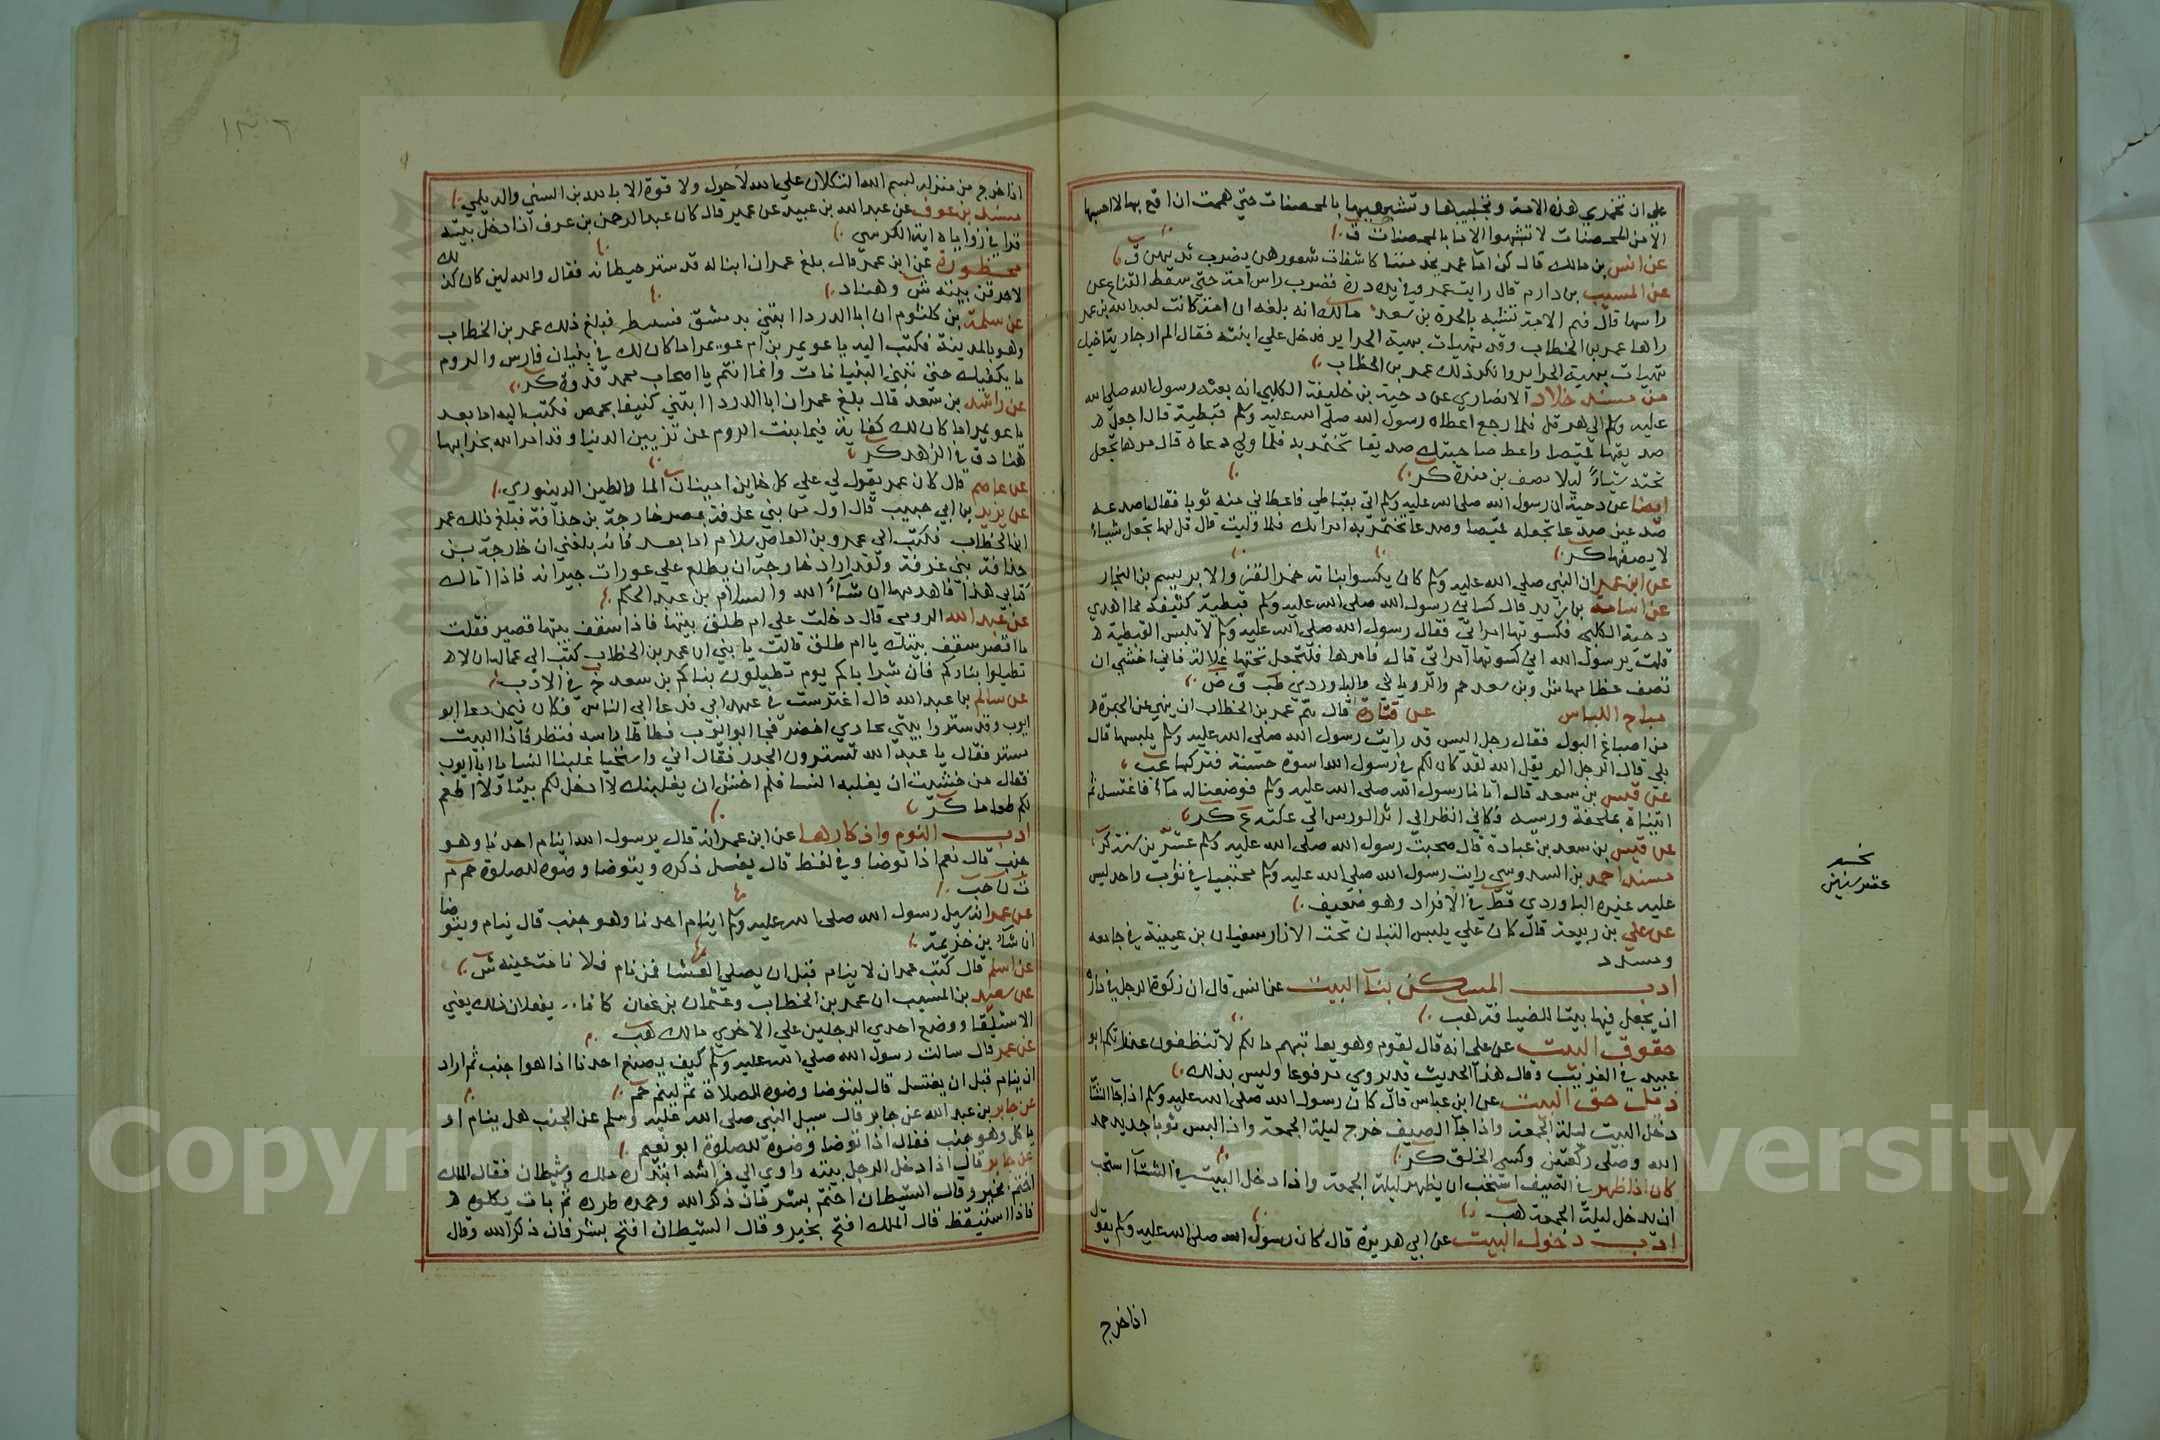 علي ان تخمري هذه الامة وتجلبيبها وتشبهيها بالمحصنات حتى هممت ان اقع بها لا احسبها
الا من المحصنات لا تشبهوا الاما بالمحصنات ق
عن انس بن مالك قال كن اما عمر يخدمننا كاشفات شعورهن يضرب ثديهن ق
عن المسيب بن دارم قال رايت عمر وفي يده درة فضرب راس امة حتى سقط القناع عن
راسها قال فيم الامة تتشبه بالحرة بن سعد مالك انه بلغه ان امة كانت لعبد الله بن عمر
راها عمر بن الخطاب وقد تهيات بهيئة الحراير فدخل علي ابنته فقال الم ار جارية اخيك
تهيات بهيئة الحراير وانكر ذلك عمر بن الخطاب
من مسند خلاد الانصاري عن دحية بن خليفة الكلبي انه بعثه رسول الله صلى الله
عليه وسلم الى هرقل فلما رجع اعطاه رسول الله صلى الله عليه وسلم قبطية قال اجعل
صديقها قميصا واعط صاحبتك صديقا تختمر به فلما ولي دعاه قال مرها تجعل
تحته شيأ ليلا يصف بن مندة كر
ايضا عن دحية ان رسول الله صلى الله عليه وسلم اتى بقباطي فاعطاني منه ثوبا فقال اصدعه
صدعين صدعا تجعله قميصا وصدعا تختمر به امراتك فلما وليت قال قل لها تجعل شيأ
لا يصفها كر
عن ابن عمر ان النبي صلى الله عليه وسلم كان يكسوا بناته خمر القز والابريسم بن النجار
عن اسامة بن زيد قال كساني رسول الله صلى الله عليه وسلم قبطية كثيفة مما اهدي
دحية الكلبي فكسوتها امراتي فقال رسول الله صلى الله عليه وسلم لا تلبس القبطية
قلت يرسول الله اني كسوتها امراتي قال فامرها فلتجعل تحتها غلالة فاني اخشي ان
تصف عظامها ش وبن سعد حم والروياني والباوردي طب ق ض
مباح اللباس عن قتادة قال هم عمر بن الخطاب ان ينهي عن الحبرة
من اصباغ البول فقال رجل اليس قد رايت رسول الله صلى الله عليه وسلم يلبسها قال
بلي قال الرجل الم يقل الله لقد كان لكم في رسول الله اسوة حسنة فتركها عب
عن قيس بن سعد قال اتانا رسول الله صلى الله عليه وسلم فوضعنا له مآء فاغتسل ثم
اتيناه بملحفة ورسيه فكاني انظر الي اثر الورس الي عكنه ع كر
عن قيس بن سعد بن عبادة قال صحبت رسول الله صلى الله عليه وسلم عشر بن سنة كر
مسند احمد بن السدوسي رايت رسول الله صلى الله عليه وسلم محتبيا في ثوب واحد ليس
عليه غيره الباوردي قط في الافراد وهو ضعيف
عن علي بن ربيعة قال كان علي يلبس التبان تحت الازار سفيان بن عيينة في جامعه
ومسدد
ادب المسكن بنآ البيت عن انس قال ان زكوة الرجل في داره
ان يجعل فيها بيتا للضيافة هب
حقوق البيت عن علي انه قال لقوم وهو يعاتبهم مالكم لا تنظفون عذراتكم ابو
عبيد في الغريب وقال هذا الحديث قد يروي مرفوعا وليس بذلك
ذيل حق البيت عن ابن عباس قال كان رسول الله صلى الله عليه وسلم اذا جآ الشتآ
دخل البيت ليلة الجمعة واذا جآ الصيف خرج ليلة الجمعة واذا لبس ثوبا جديد حمد
الله وصلى ركعتين وكسي الخلق كر
كان اذا ظهر في الصيف استحب ان يظهر ليلة الجمعة واذا دخل البيت في الشتآ استحب
ان يدخل ليلة الجمعة هب
ادب دخول البيت عن ابي هريرة قال كان رسول الله صلى الله عليه وسلم يقول
اذا خرج
عشر سنين
اذا خرج من منزله بسم الله التكلان علي الله لا حول ولا قوة الا بالله بن السني والديلمي
مسند بن عوف عن عبد الله بن عبيد عن عمير قال كان عبد الرحمن بن عوف اذا دخل بيته
قرا في زواياه اية الكرسي
محظورة عن ابن عمر قال بلغ عمر ان ابنا له قد ستر حيطانه فقال والله لين كان كذلك
لاحرقن بيته ش وهناد
عن سلمة بن كلثوم ان ابا الدردا ابتني بدمشق قسط فبلغ ذلك عمر بن الخطاب
وهو بالمدينة فكتب اليه يا عويمر بن ام عويمر اما كان لك في بنيان فارس والروم
ما يكفيك حتى تبني البنيانات وانما انتم يا اصحاب محمد قدوة كر
عن راشد بن سعد قال بلغ عمر ان ابا الدردا ابتني كنيفا بحمص فكتب اليه اما بعد
يا عويمر اما كان لك كفاية فيما بنت الروم عن تزيين الدنيا وقد امر الله بخرابها
هناد ق في الزهد كر
عن عاصم قال كان عمر يقول لي علي كل خاين امينان الما والطين الدينوري
عن يزيد بن ابي حبيب قال اول من بني غرفة بمصر خارجة بن حذافة فبلغ ذلك عمر
ابن الخطاب فكتب الى عمرو بن العاص سلام اما بعد فانه بلغني ان خارجة بن
حذافة بني غرفة ولقد اراد خارجة ان يطلع علي عورات جيرانه فاذا اتاك
كتابي هذا فاهدمها ان شآء الله والسلام بن عبد الحكم
عن عبد الله الرومي قال دخلت علي ام طلق بيتها فاذا سقف بيتها قصير فقلت
ما اقصر سقف بيتك يا ام طلق قالت يا بني ان عمر بن الخطاب كتب الى عماله ان لا
تطيلوا بناءكم فان شر ايامكم يوم تطيلون بناكم بن سعد خ في الادب
عن سالم بن عبد الله قال اعترست في عهد ابي فدعا ابي الناس فكان فيمن دعا ابو
ايوب وقد ستروا بيتي بجادي اخضر فجا ابو ايوب فطاطا راسه فنظر فاذا البيت
ستر فقال يا عبد الله تسترون الجدر فقال ابي واستحيا غلبنا النسا يا ابا ايوب
فقال من خشيت ان يغلبه النسا فلم اخش ان يغلبنك لا ادخل لكم بيتا ولا اطعم
لكم طعاما كر
ادب النوم واذكارها عن ابن عمر انه قال يرسول الله اينام احدنا وهو
جنب قال نعم اذا توضا وفي لفظ قال يغسل ذكره ويتوضا وضوه للصلوة حم م
ت ن حب
عن عمر انه سيل رسول الله صلى الله عليه وسلم اينام احدنا وهو جنب قال ينام ويتوضا
ان شآء بن خزيمة
عن اسلم قال كتب عمر ان لا ينام قبل ان يصلي العشا فمن نام فلا نامت عينه ش
عن سعيد بن المسيب ان عمر بن الخطاب وعثمان بن عفان كانا يفعلان ذلك يعني
الاستلقا ووضع احدي الرجلين علي الاخري مالك هب
عن عمر قال سالت رسول الله صلى الله عليه وسلم كيف يصنع احدنا اذا هو اجنب ثم اراد
ان ينام قبل ان يغتسل قال ليتوضا وضوه للصلاة ثم لينم حم
عن جابر بن عبد الله عن جابر قال سيل النبي صلى الله عليه وسلم عن الجنب هل ينام او
ياكل وهو جنب فقال اذا توضا وضوه للصلوة ابو نعيم
عن جابر قال اذا دخل الرجل بيته واوي الي فراشه ابتدره ملك وشيطان فقال الملك
اختم بخير وقال الشيطان اختم بشر فان ذكر الله وحمده طرده ثم بات يكلوه
فاذا استيقظ قال الملك افتح بخير وقال الشيطان افتح بشر فان ذكر الله وقال
Copyright © King Saud University